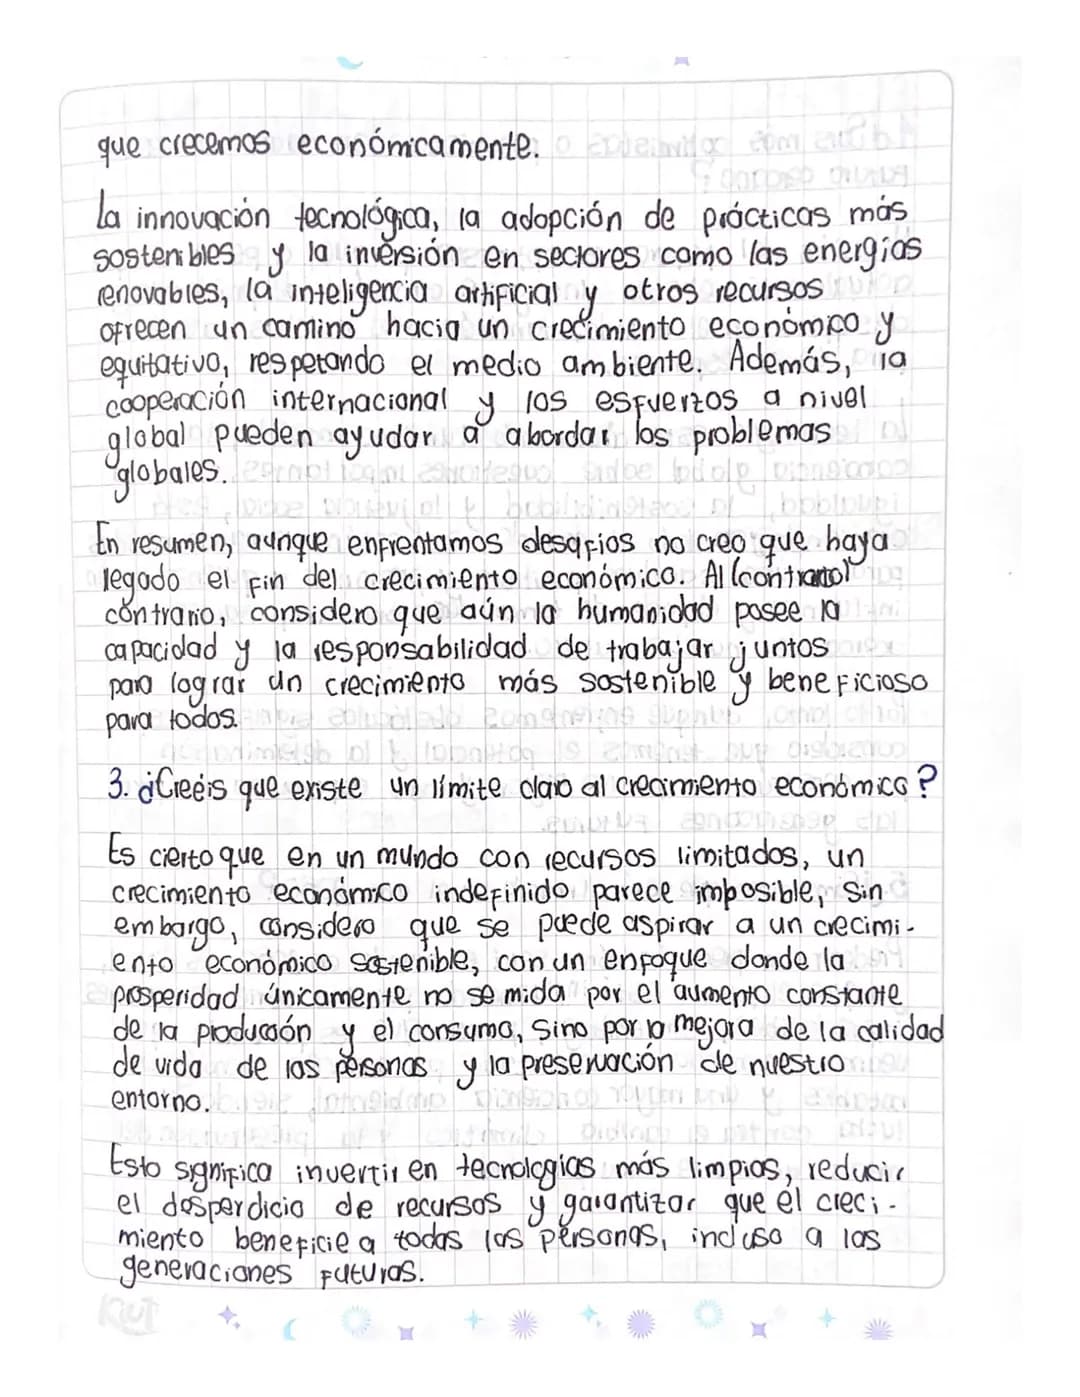 que crecemos económicamente.
La innovación tecnológica, la adopción de prácticas más
sostenibles y la inversión en sectores como las energías
renovables, la inteligencia artificial y otros recursos
ofrecen un camino hacia un crecimiento económico y
equitativo, respetando el medio ambiente. Además, la
cooperación internacional y los esfuerzos a nivel
global pueden ayudar a abordar los problemas
globales.
En resumen, aunque enfrentamos desafios no creo que haya
legado el fin del crecimiento económico. Al (contrario)
contrario, considero que aún la humanidad posee la
capacidad y la responsabilidad de trabajar juntos
para lograr un crecimiento más sostenible y beneficioso
para todos.
3. ¿Creéis que existe un límite claro al crecimiento económico?
Es cierto que en un mundo con recursos limitados, un
crecimiento económico indefinido parece imposible, sin
embargo, considero que se puede aspirar a un crecimi-
ento económico sostenible, con un enfoque donde la
prosperidad únicamente no se mida por el aumento constante
de la producción y el consumo, sino por la mejora de la calidad
de vida de las personas y la preservación de nuestro
entorno.
Esto significa invertir en tecnologías más limpias, reducir
el desperdicio de recursos y garantizar que el creci-
miento beneficie a todas las personas, incluso a las
generaciones futuras.